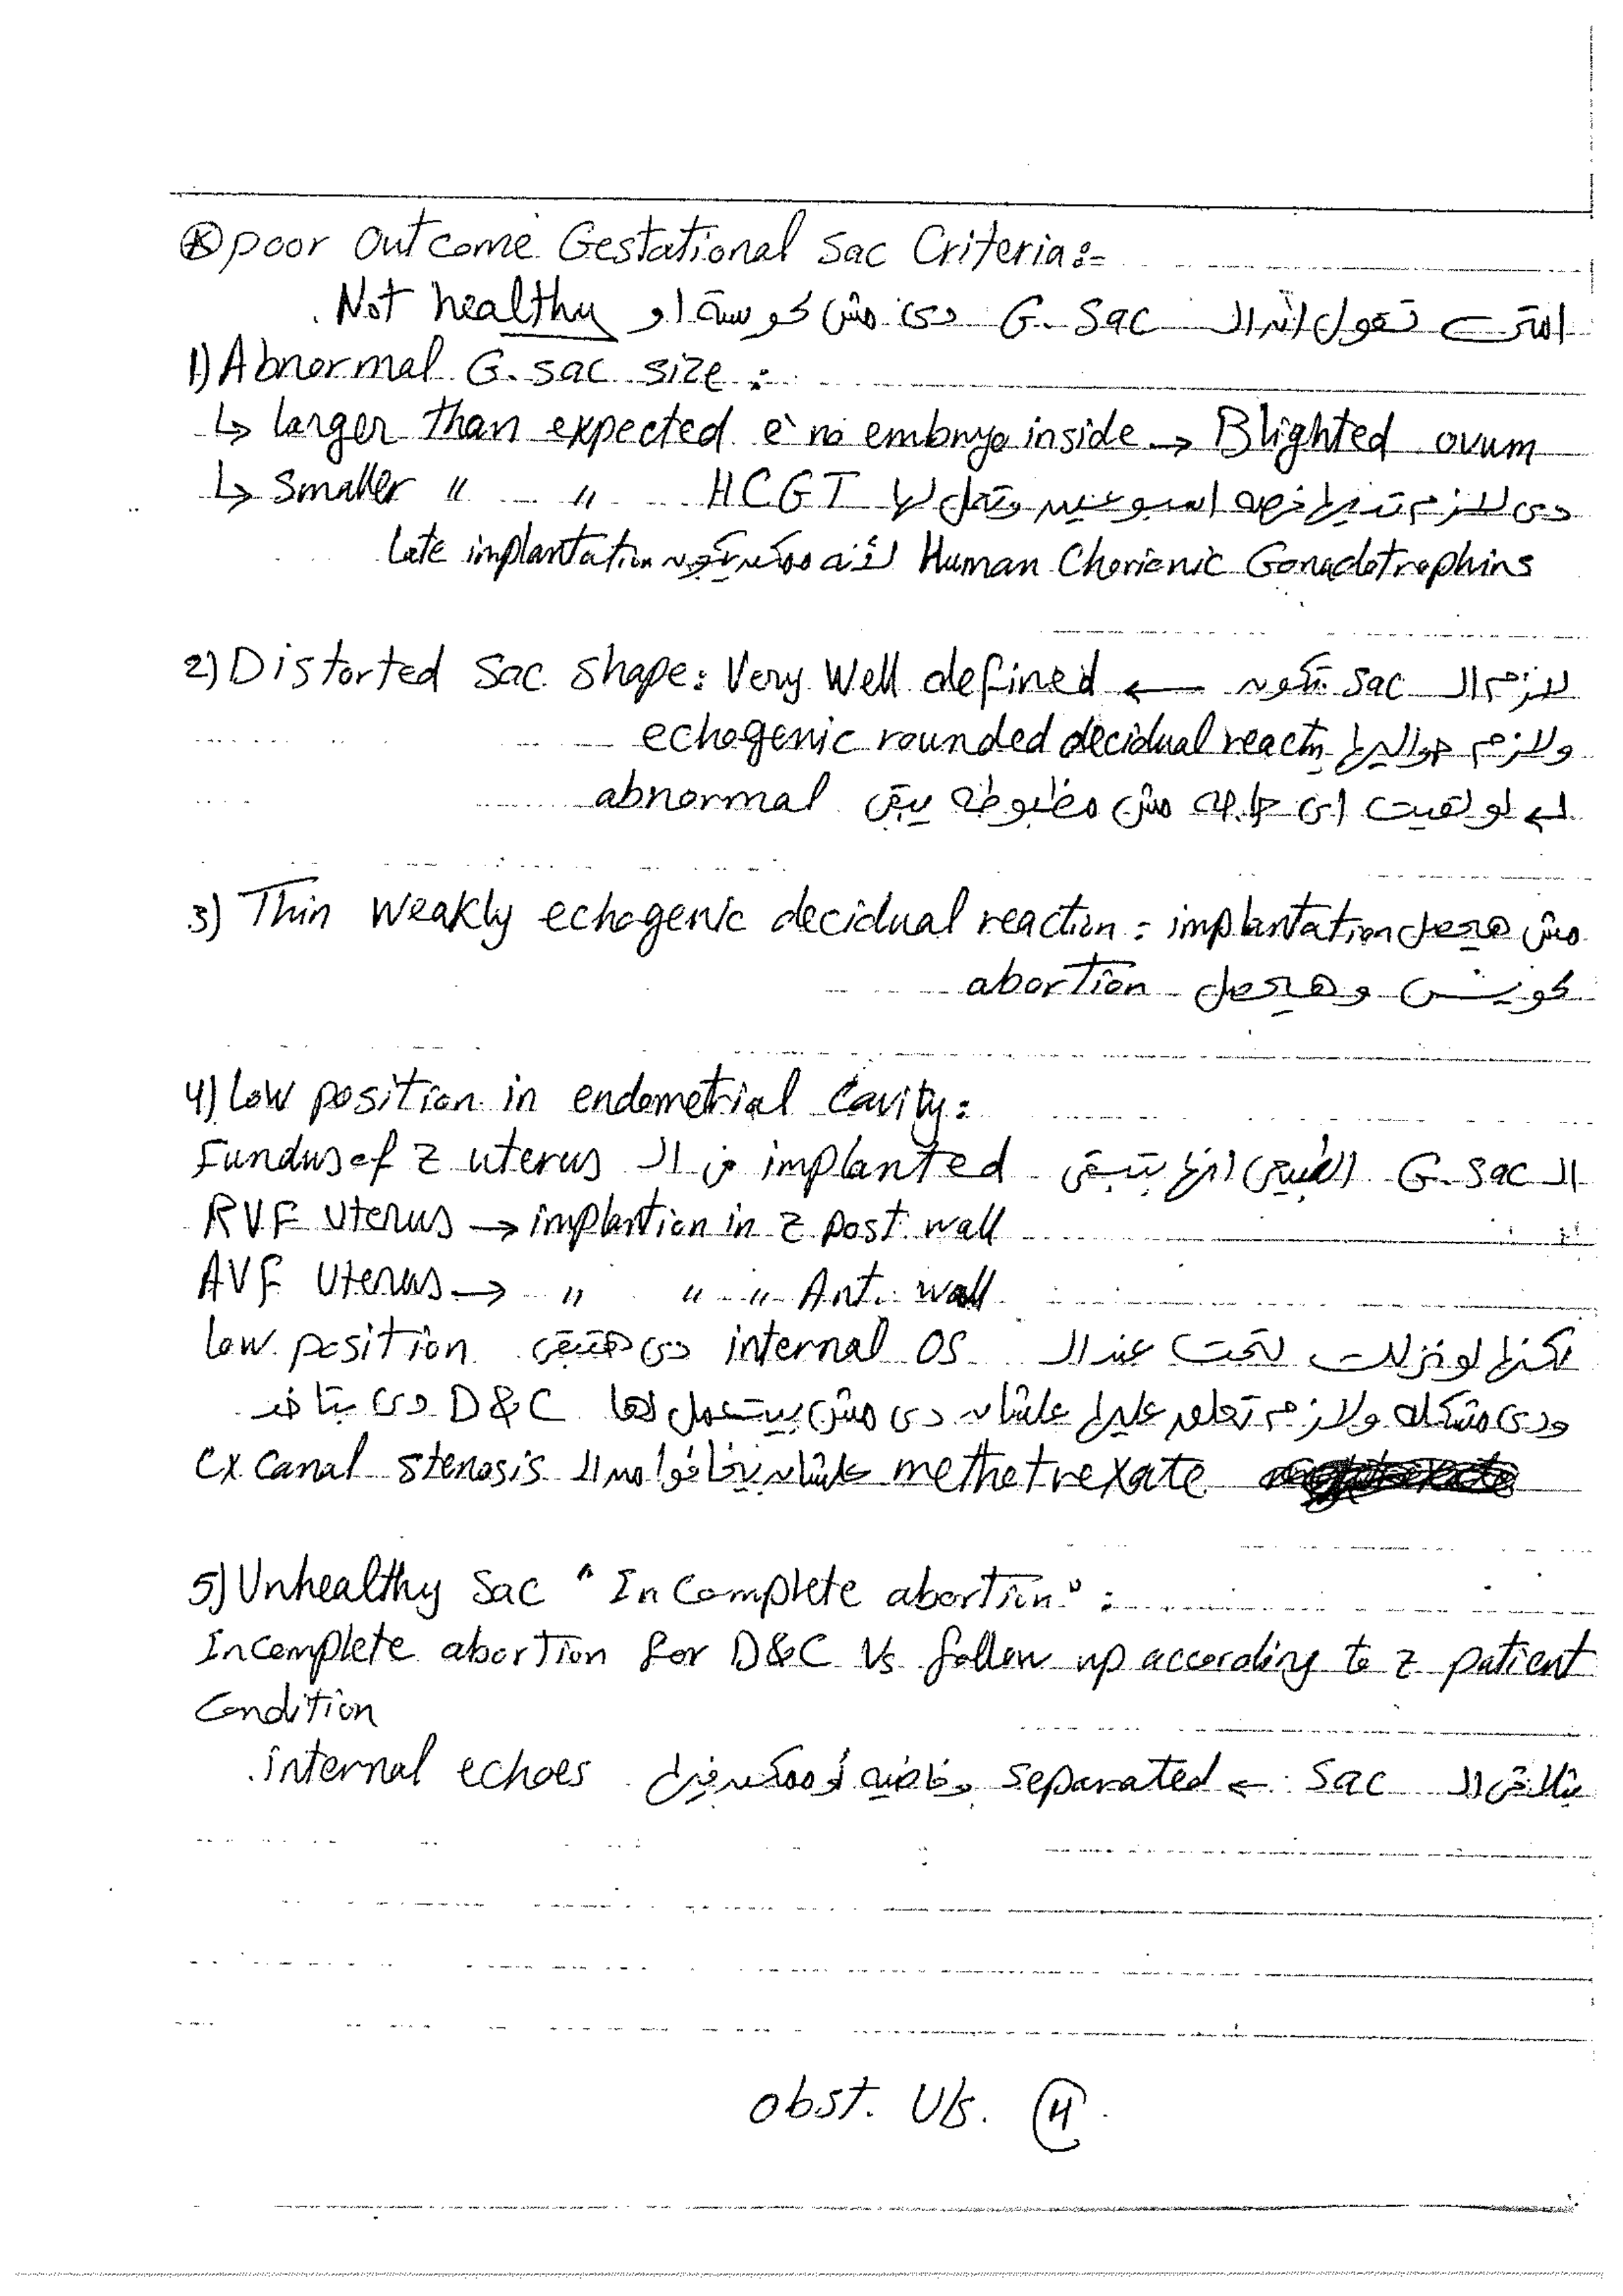 ⊛ poor outcome Gestational Sac Criteria:-
امتى تقول ان ال G. Sac دى مش كويسة او Not healthy.
1) Abnormal G. sac size :
↳ larger than expected è no embryo inside → Blighted ovum
↳ Smaller " " دى لازم تديها فرصه اسبوعين وتعمل لها HCGT
Human Chorionic Gonadotrophins لأنه ممكن تكون Late implantation
2) Distorted Sac shape: لازم ال sac تكون ← Very Well defined
ولازم حواليها echogenic rounded decidual reactn
لو لقيت اى حاجه مش مظبوطه يبقى abnormal
3) Thin Weakly echogenic decidual reaction : مش هيحصل implantation
كويس وهيحصل abortion
4) Low position in endometrial Cavity:
ال G. Sac الطبيعى انها بتبقى implanted فى ال Fundus of z uterus
RVF uterus → implantion in z post. wall
AVF uterus → " " " Ant. wall
لكنها لو نزلت تحت عند ال internal OS دى هتبقى low position
ودى مشكله ولازم تعلم عليها علشان دى مش بيتعمل لها D&C دى بتاخد
methotrexate علشان بيخافوا من ال Cx Canal stenosis
5) Unhealthy Sac "InComplete abortion" :
Incomplete abortion for D&C Vs follow up according to z patient
Condition
بتلاقى ال Sac ← separated وفاضيه او ممكن فيها internal echoes.
obst. U/s. 4